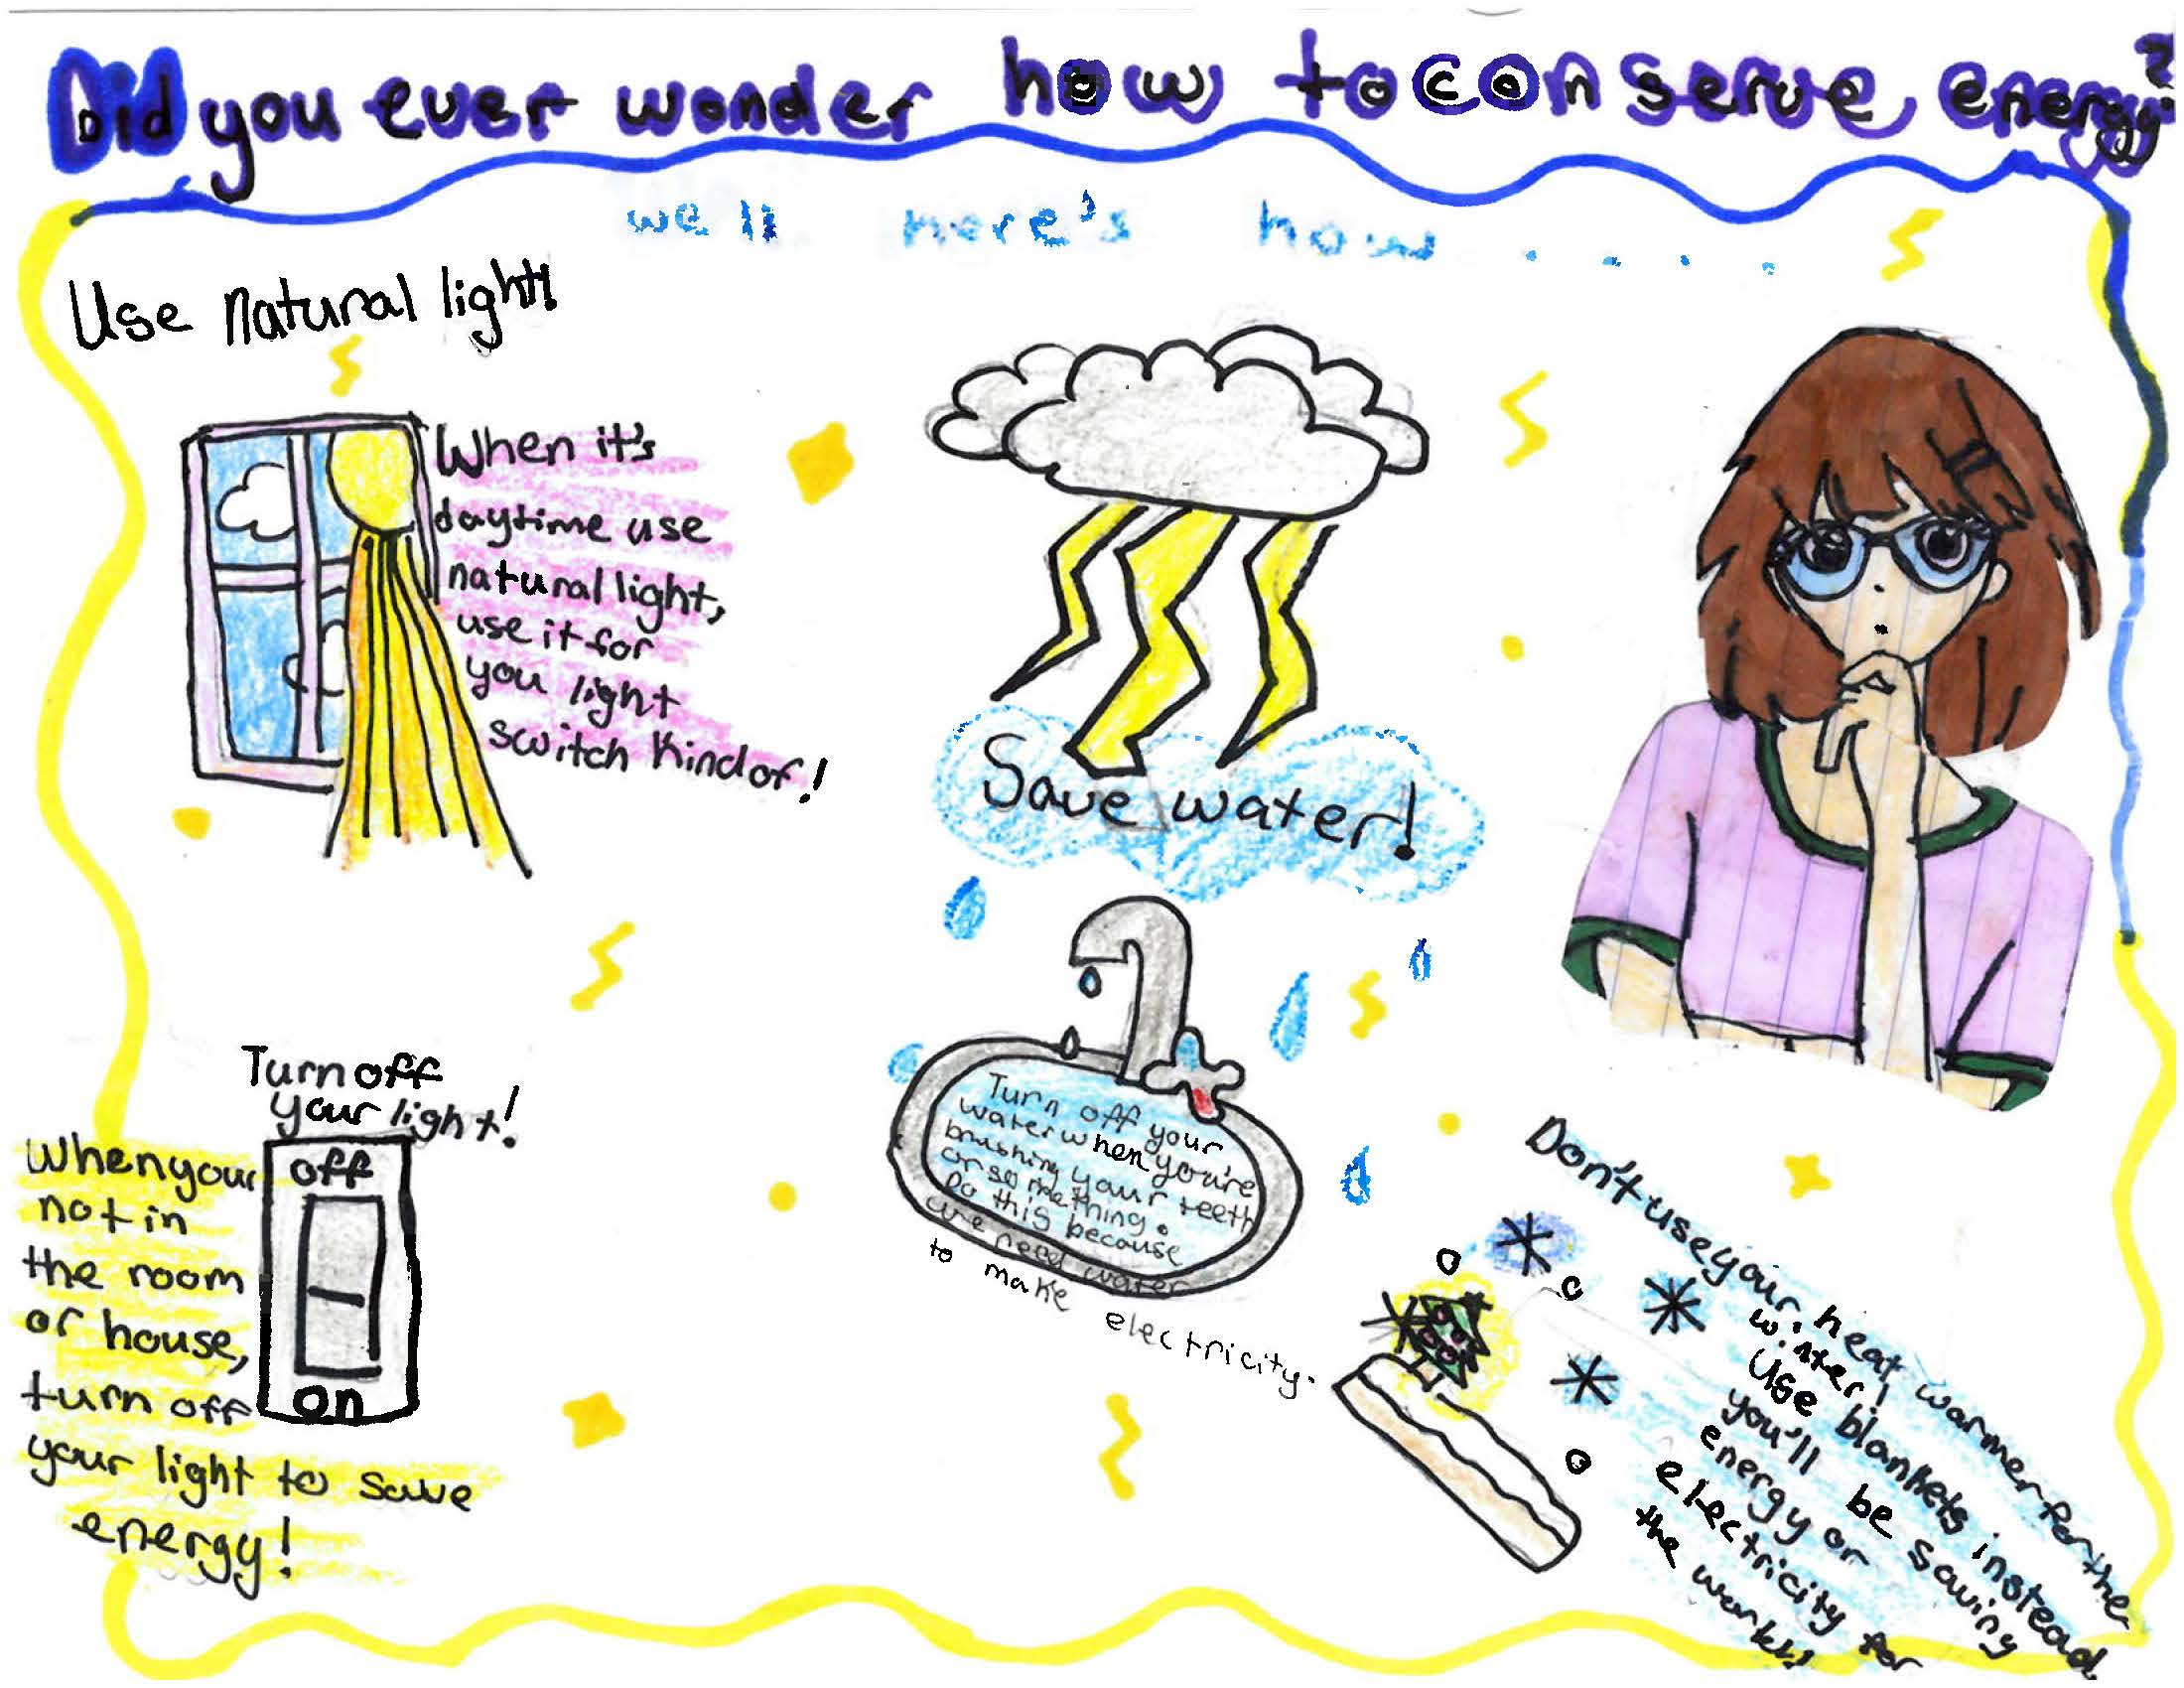 Did you ever wonder how to conserve energy?
well here's how....
Use natural light!
When it's
daytime use
natural light,
use it for
you light
switch kind of!
Save water!
Turn off your
water when you're
brushing your teeth
or something.
Do this because
we need water
to make electricity.
Turn off
your light!
off
on
When your
not in
the room
or house,
turn off
your light to save
energy!
Don't use your heat warmer for the
winter!
Use blankets instead
you'll be saving
energy or
electricity for
the